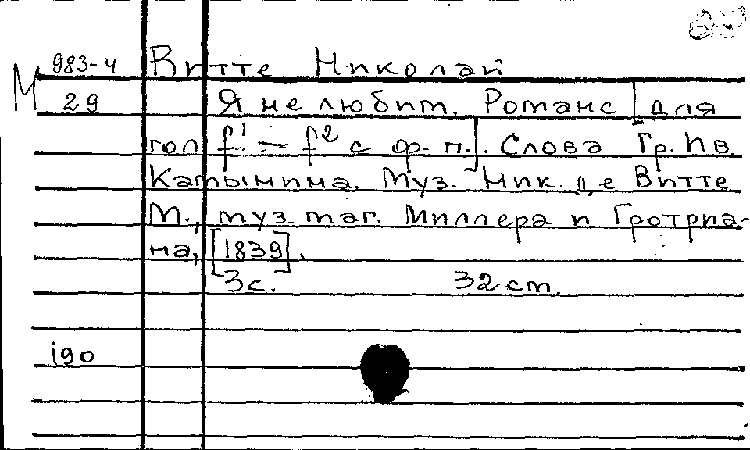 983-4 Витте Николай
М 29 Я не любит. Романс [для
гол f¹ — f² с ф-п.]. Слова Гр. Ив.
Муз. Ник. де Витте
М., муз. маг. Миллера и Гротриа-
на, [1839].
3с. 32 cm.
i90